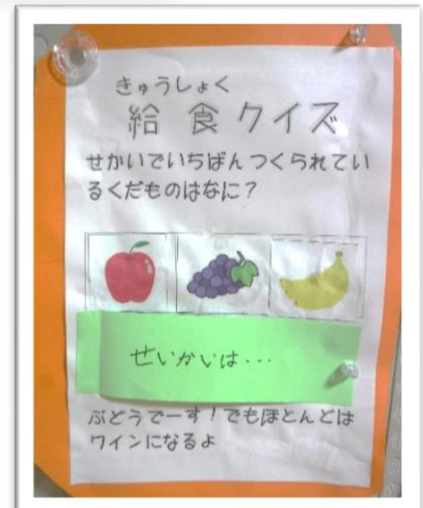 きゅうしょく
給食クイズ
せかいでいちばんつくられてい
るくだものはなに？
せいかいは・・・
ぶどうでーす！でもほとんどは
ワインになるよ